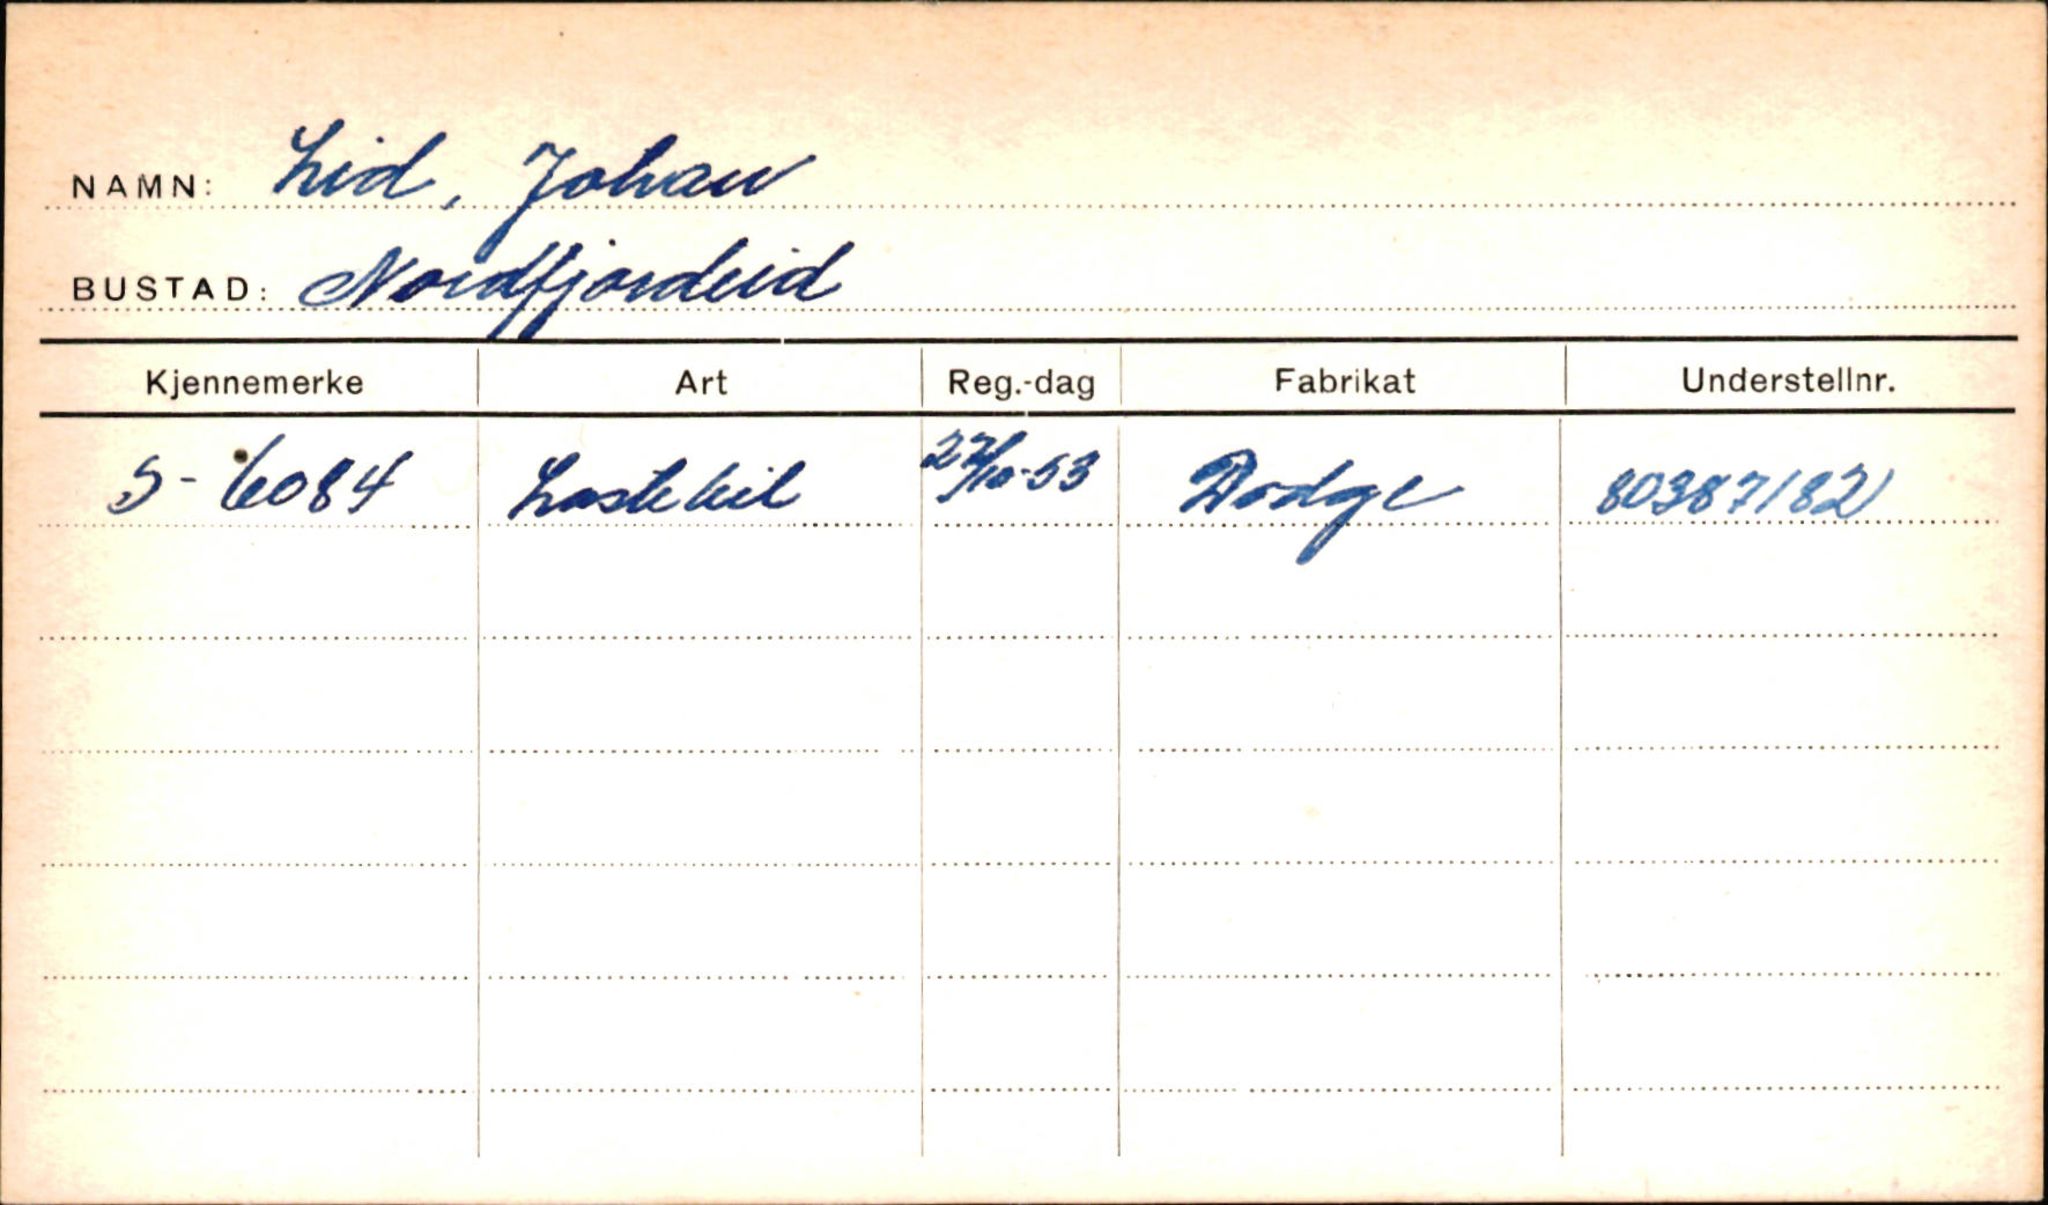 NAMN: Lid, Johan
BUSTAD: Nordfjordeid
Kjennemerke Art Reg.-dag Fabrikat Understellnr.
S-6084 Lastebil 27/10-53 Dodge 80387182